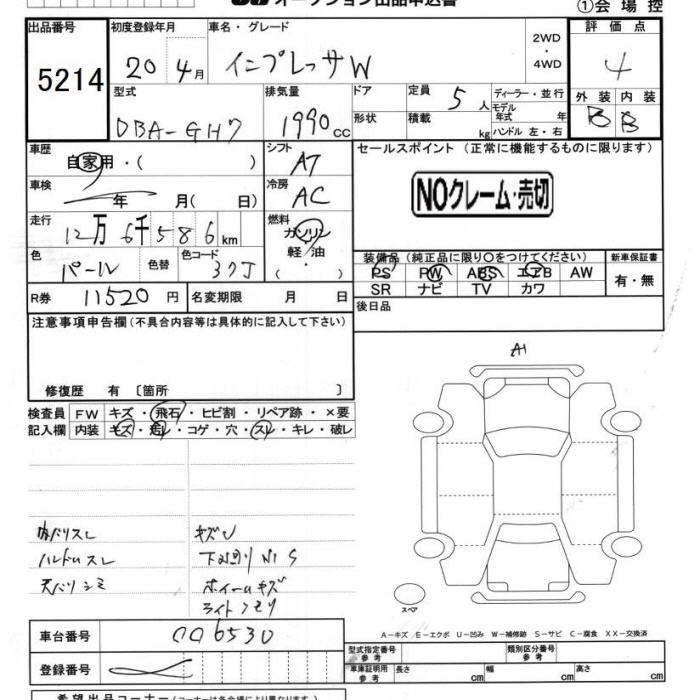 オークション出品申込書
①会場控
出品番号
5214
初度登録年月
20 4月
車名・グレード
インプレッサW
2WD・4WD
評価点
4
型式
DBA-GH7
排気量
1990cc
ドア
形状
定員 5人
積載 kg
ディーラー・並行
モデル年式 年
ハンドル 左・右
外装 B
内装 B
車歴
自家用・( )
シフト
AT
セールスポイント（正常に機能するものに限ります）
NOクレーム・売切
車検
年 月( 日)
冷房
AC
走行
12万6千586km
燃料
ガソリン
軽油
( ・ )
色
パール
色替
色コード
37J
装備品（純正品に限り○をつけてください）
PS PW ABS エアB AW
SR ナビ TV カワ
新車保証書
有・無
R券 11520円
名変期限 月 日
後日品
注意事項申告欄（不具合内容等は具体的に記入して下さい）
修復歴 有 〔箇所 〕
検査員記入欄
FW キズ・飛石・ヒビ割・リペア跡・×要
内装 キズ・汚レ・コゲ・穴・スレ・キレ・破レ
A1
内バリスレ
ハンドルスレ
天バリシミ
キズU
下回りサビ S
ホイールキズ
ライトクモリ
スペア
A－キズ E－エクボ U－凹み W－補修跡 S－サビ C－腐食 XX－交換済
車台番号
006530
登録番号
型式指定番号 参考
類別区分番号 参考
車庫証明用 参考
長さ cm
幅 cm
高さ cm
希望出品コーナー（コーナーは各会場により異なります）